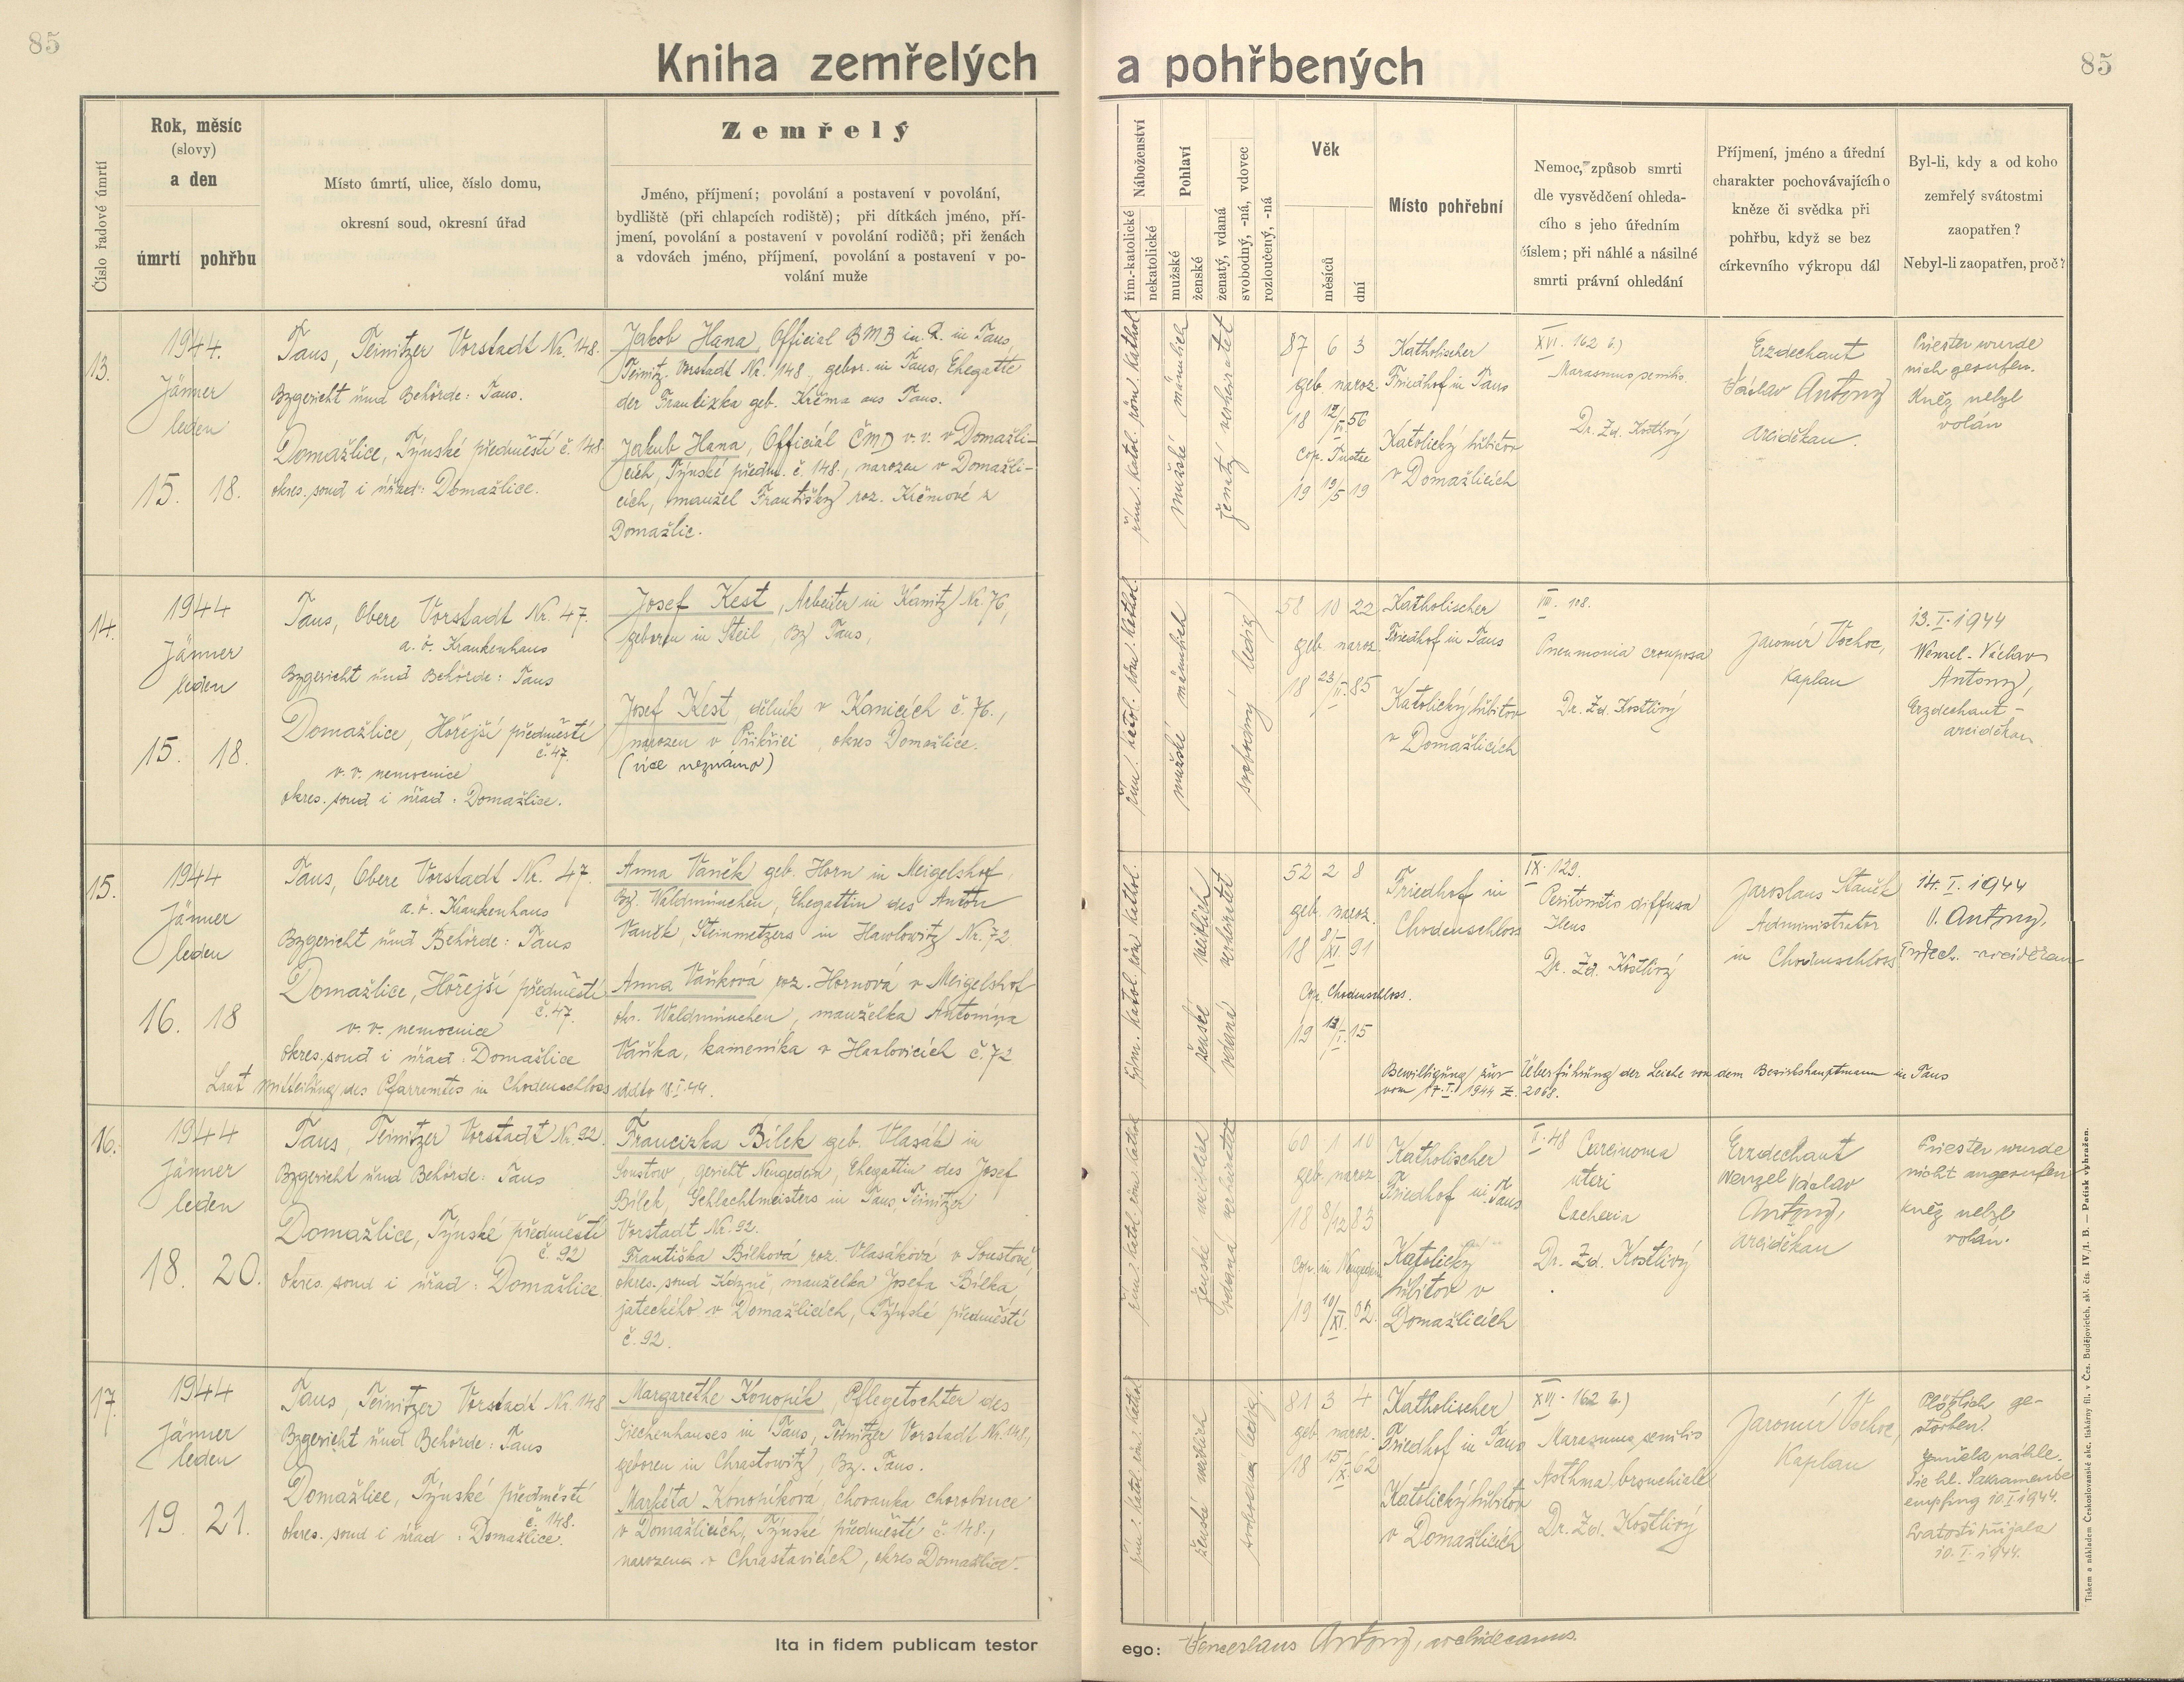 85
Kniha zemřelých
a pohřbených
85
Číslo řadové úmrtí
Rok, měsíc
(slovy)
a den
úmrtí
pohřbu
Místo úmrtí, ulice, číslo domu,
okresní soud, okresní úřad
Zemřelý
Jméno, příjmení; povolání a postavení v povolání,
bydliště (při chlapcích rodiště); při dítkách jméno, pří-
jmení, povolání a postavení v povolání rodičů; při ženách
a vdovách jméno, příjmení, povolání a postavení v po-
volání muže
Náboženství
řím.-katolické
nekatolické
Pohlaví
mužské
ženské
ženatý, vdaná
svobodný, -ná, vdovec
rozloučený, -ná
Věk
měsíců
dní
Místo pohřební
Nemoc, způsob smrti
dle vysvědčení ohleda-
cího s jeho úředním
číslem; při náhlé a násilné
smrti právní ohledání
Příjmení, jméno a úřední
charakter pochovávajícího
kněze či svědka při
pohřbu, když se bez
církevního výkropu dál
Byl-li, kdy a od koho
zemřelý svátostmi
zaopatřen?
Nebyl-li zaopatřen, proč?
13.
1944.
Jänner
leden
15. 18.
Taus, Teinitzer Vorstadt Nr. 148.
Bzgericht und Behörde: Taus.
Domažlice, Týnské předměstí č. 148
okres. soud i úřad: Domažlice.
Jakob Hana, Official BMB in R. in Taus,
Teinitz. Vorstadt Nr. 148., gebor. in Taus, Ehegatte
der Franzizka geb. Krěma aus Taus.
Jakub Hana, Officiál ČMD v. v. v Domažli-
cích, Týnské předm. č 148., narozen v Domažli-
cích, manžel Františky roz. Krěmové z
Domažlic.
řím. katol. röm. kathol.
mužské männlich
ženatý verheiratet
87 6 3
geb. naroz.
18 12/VI 56
Cop. Tustae
19 19/5 19
Katholischer
Friedhof in Taus
Katolický hřbitov
v Domažlicích
XVI. 162 b)
Marasmus senilis.
Dr. Zd. Kostlivý
Erzdechant
Václav Antony
arciděkan.
Priester wurde
nich gerufen.
Kněz nebyl
volán
14.
1944
Jänner
leden
15. 18.
Taus, Obere Vorstadt Nr. 47.
a. ö. Krankenhaus
Bzgericht und Behörde: Taus
Domažlice, Hořejší předměstí
č. 47.
v. v. nemocnice
okres. soud i úřad: Domažlice.
Josef Kest, Arbeiter in Kanitz Nr. 76,
geboren in Steil, Bz Taus,
Josef Kest, dělník v Kanicích č. 76.,
narozen v Příkřici, okres Domažlice.
(více neznámo)
řím. katol. röm. kathol.
mužské männlich
svobodný ledig
58 10 22
geb. naroz.
18 23/II. 85
Katholischer
Friedhof in Taus
Katolický hřbitov
v Domažlicích
VIII. 108.
Pneumonia crouposa
Dr. Zd. Kostlivý
Jaromír Vochoc,
Kaplan
13. I. 1944
Wenzel-Václav
Antony,
Erzdechant-
arciděkan
15.
1944
Jänner
leden
16. 18
Taus, Obere Vorstadt Nr. 47.
a. ö. Krankenhaus
Bzgericht und Behörde: Taus
Domažlice, Hořejší předměstí
č. 47.
v. v. nemocnice
okres. soud i úřad: Domažlice
Laut Mitteilung des Pfarramtes in Chodenschloss ddto 18. I. 44.
Anna Vaněk geb. Horn in Meigelshof,
Bz. Waldmünchen, Ehegattin des Anton
Vaněk, Steinmetzers in Hawlowitz Nr. 72.
Anna Vaňková roz. Hornová v Meigelshof
okr. Waldmünchen, manželka Antonína
Vaňka, kameníka v Havlovicích č. 72
řím. katol. röm. kathol.
ženské weiblich
vdaná verheiratet
52 2 8
geb. naroz.
18 8/XI 91
Cop. Chodenschloss.
19 12/I. 15
Friedhof in
Chodenschloss
IX. 129.
Peritonitis diffusa
Ileus
Dr. Zd. Kostlivý
Jaroslaus Staněk
Administrator
in Chodenschloss
14. I. 1944
V. Antony,
Erzdech. arciděkan
Bewilligung zur Überführung der Leiche von dem Bezirkshauptmann in Taus
vom 17. I. 1944 Z. 2068.
16.
1944
Jänner
leden
18. 20.
Taus, Teinitzer Vorstadt Nr. 92.
Bzgericht und Behörde: Taus
Domažlice, Týnské předměstí
č. 92
okres. soud i úřad: Domažlice
Francizka Bílek geb. Vlasák in
Soustow, Gericht Neugedein, Ehegattin des Josef
Bílek, Schlachtmeisters in Taus, Teinitzer
Vorstadt Nr. 92.
Františka Bílková roz. Vlasáková v Soustově,
okres. soud Kdyně, manželka Josefa Bílka,
jateckého v Domažlicích, Týnské předměstí
č. 92.
řím. katol. röm. kathol.
ženské weiblich
vdaná verheiratet
60 1 10
geb. naroz.
18 8/12 83
Cop. in Neugedein
19 10/XI. 02.
Katholischer
Friedhof in Taus
Katolický
hřbitov v
Domažlicích
I. 48 Carcinoma
uteri
Cachexia
Dr. Zd. Kostlivý
Erzdechant
Wenzel Václav
Antony,
arciděkan
Priester wurde
nicht angerufen
kněz nebyl
volán.
17.
1944
Jänner
leden
19. 21.
Taus, Teinitzer Vorstadt Nr. 148
Bzgericht und Behörde: Taus
Domažlice, Týnské předměstí
č. 148.
okres. soud i úřad: Domažlice.
Margarethe Konopík, Pflegetochter des
Siechenhauses in Taus, Teinitzer Vorstadt Nr. 148.,
geboren in Chrastowitz, Bz. Taus.
Markéta Konopíková, chovanka chorobince
v Domažlicích, Týnské předměstí č. 148.,
narozena v Chrastavicích, okres Domažlice.
řím. katol. röm. kathol.
ženské weiblich
svobodná ledig.
81 3 4
geb. naroz.
18 15/X. 62
Katholischer
Friedhof in Taus
Katolický hřbitov
v Domažlicích
XVI. 162 b)
Marasmus senilis
Asthma bronchiale
Dr. Zd. Kostlivý
Jaromír Vochoc,
Kaplan
Plötzlich ge-
storben.
Zemřela náhle.
Die hl. Sakramente
empfing 10. I. 1944.
Svátosti přijala
10. I. 1944.
Ita in fidem publicam testor
ego: Venceslaus Antony, archidecanus.
Tiskem a nákladem Československé akc. tiskárny fil. v Čes. Budějovicích, skl. čís. IV./1. B. — Patisk vyhražen.